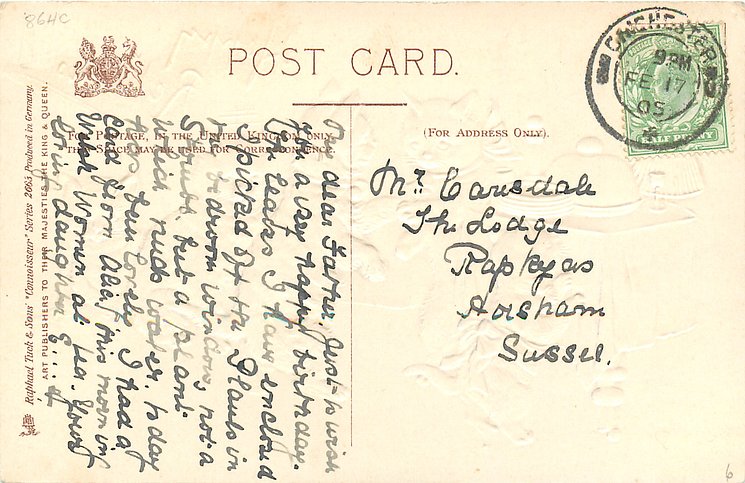 864C
POST CARD.
CHICHESTER
9 PM
FE 17
05
HALF PENNY
FOR POSTAGE, IN THE UNITED KINGDOM ONLY,
THIS SPACE MAY BE USED FOR CORRESPONDENCE.
(FOR ADDRESS ONLY).
Raphael Tuck & Sons' "Connoisseur" Series 2663 Produced in Germany.
ART PUBLISHERS TO THEIR MAJESTIES THE KING & QUEEN.
My dear Father. Just to wish
You a very happy birthday.
The leaves I have enclosed
I picked off the Plants in
bedroom window, not a
but a plant
which needs water. to day
has been lovely I had a
Card from Alice this morning
Women at tea. Your
loving daughter E
Mr. Carsdale
The Lodge
Rapkyns
Horsham
Sussex.
6